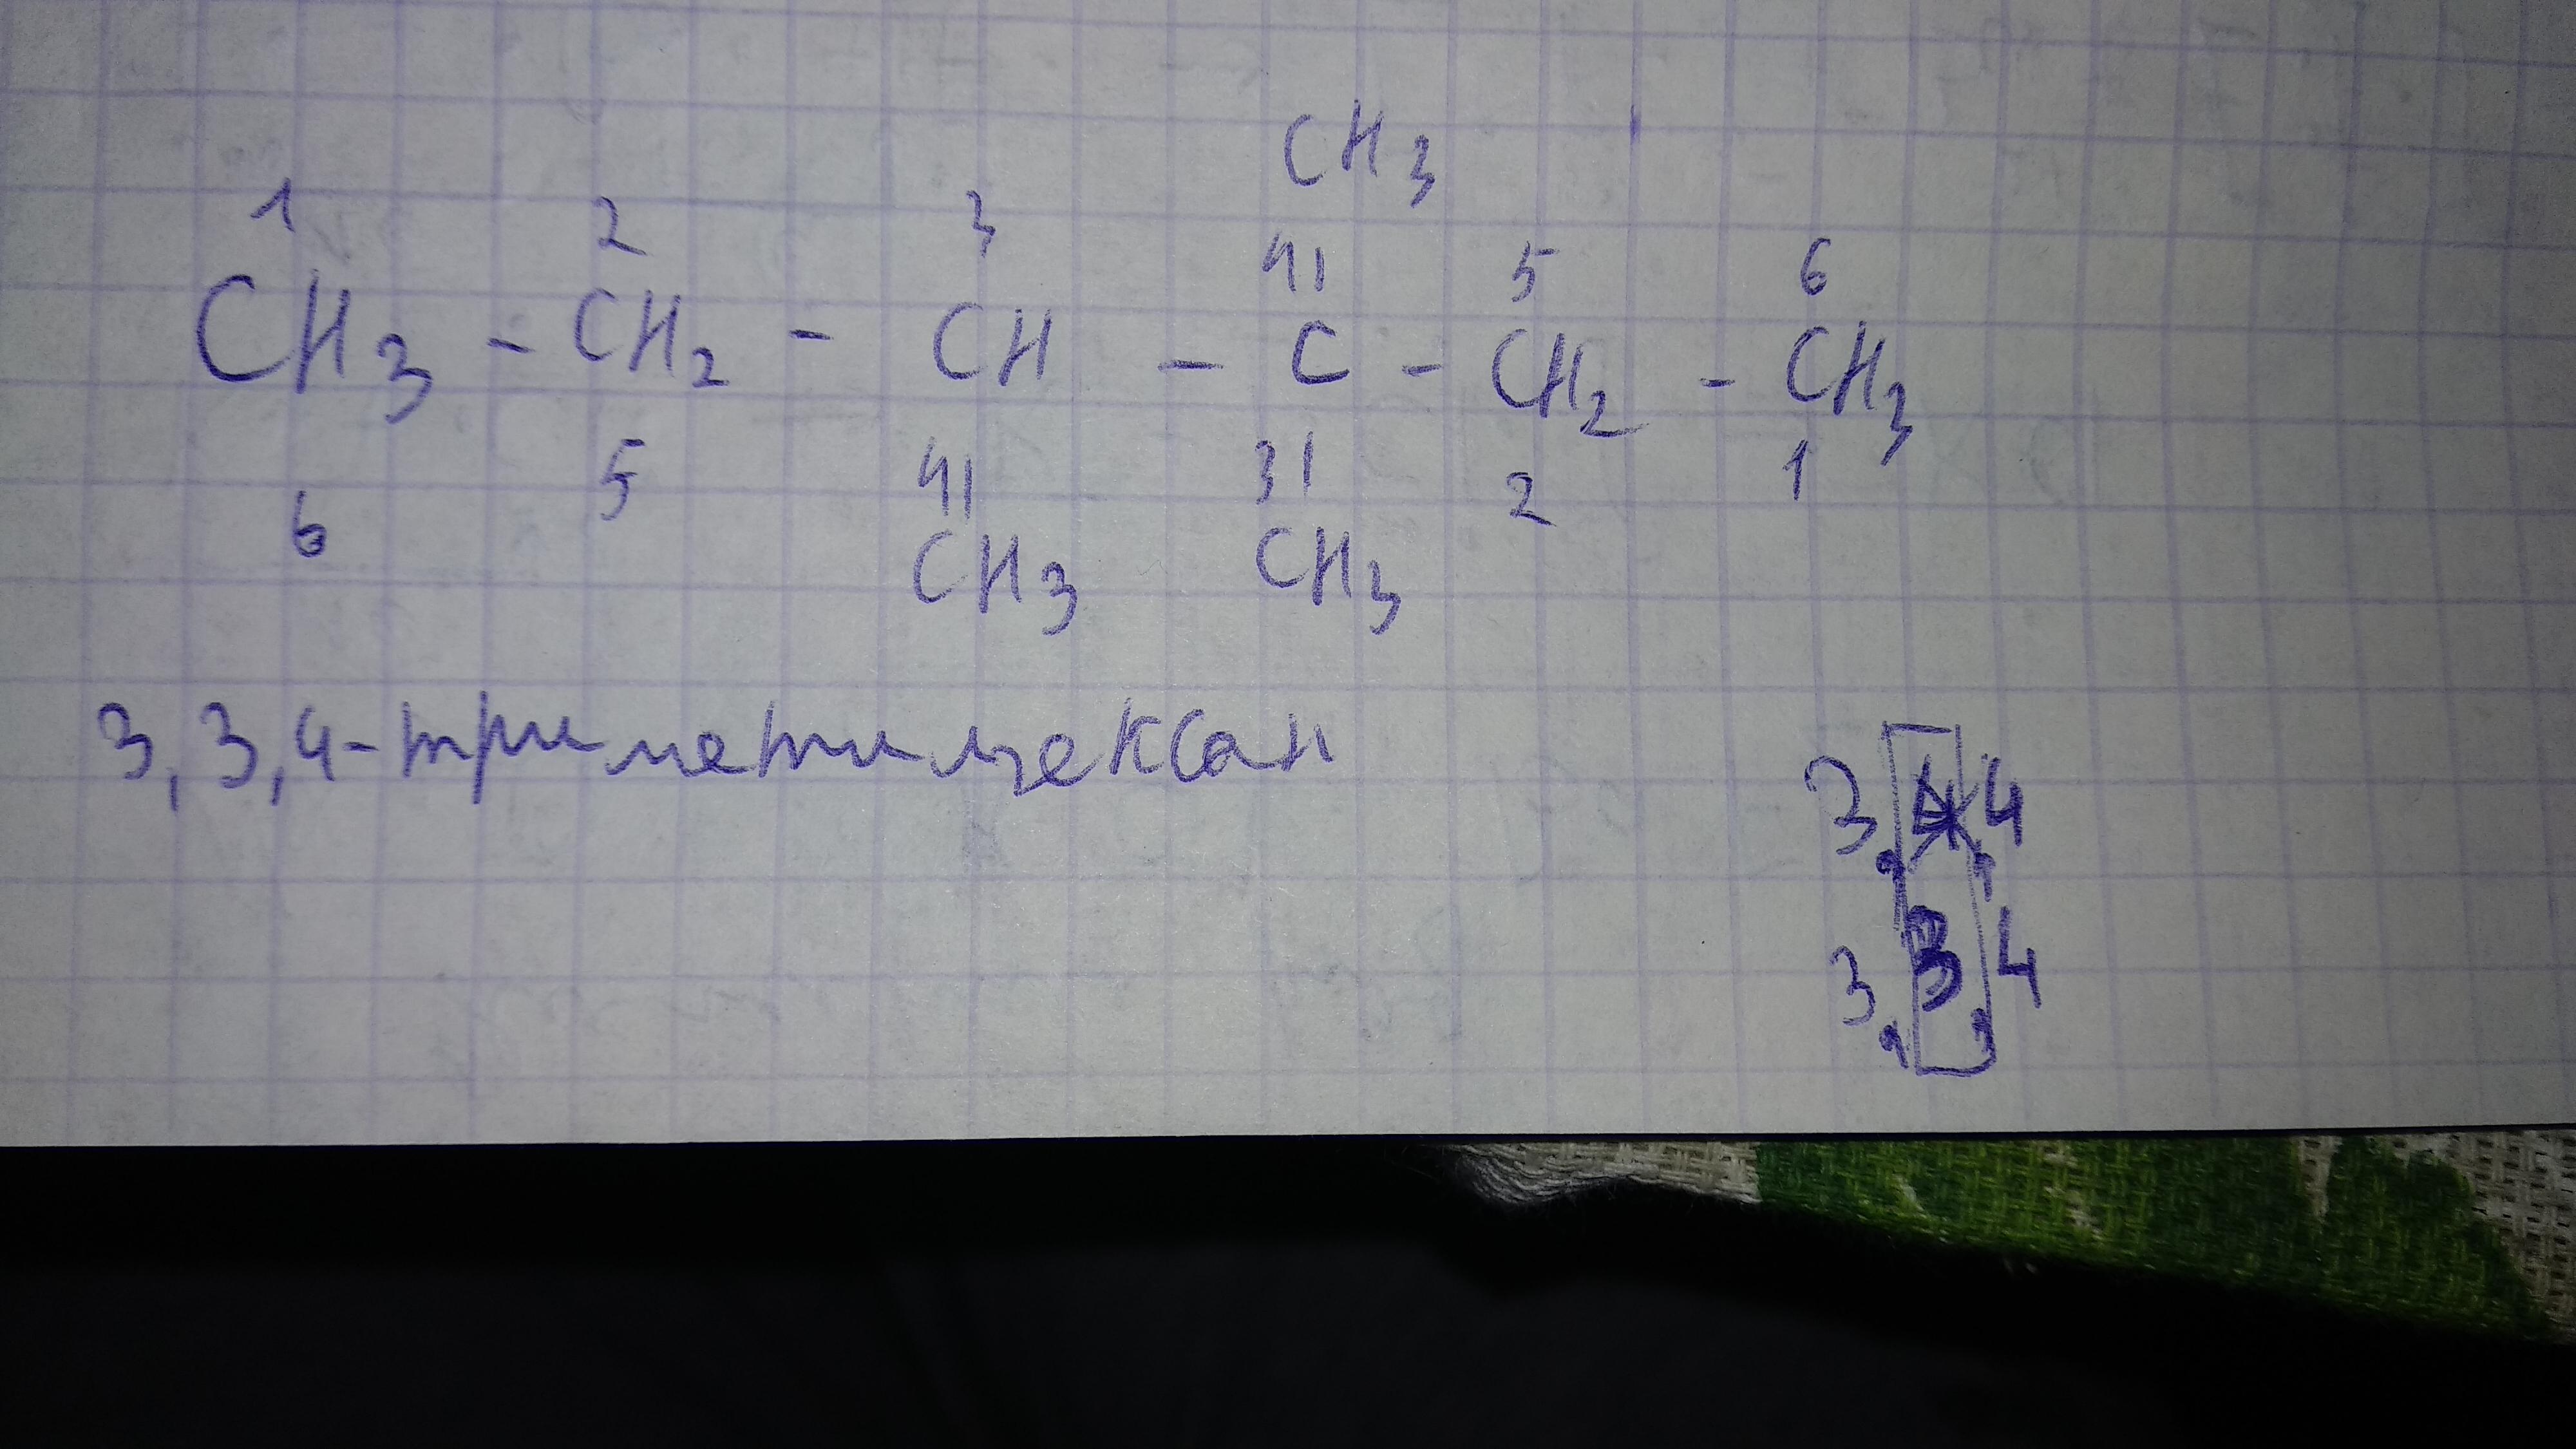 CH3
1 2 3 4 5 6
CH3 - CH2 - CH - C - CH2 - CH3
6 5 4 3 2 1
CH3 CH3
3,3,4-триметилгексан
3,4,4
3,3,4